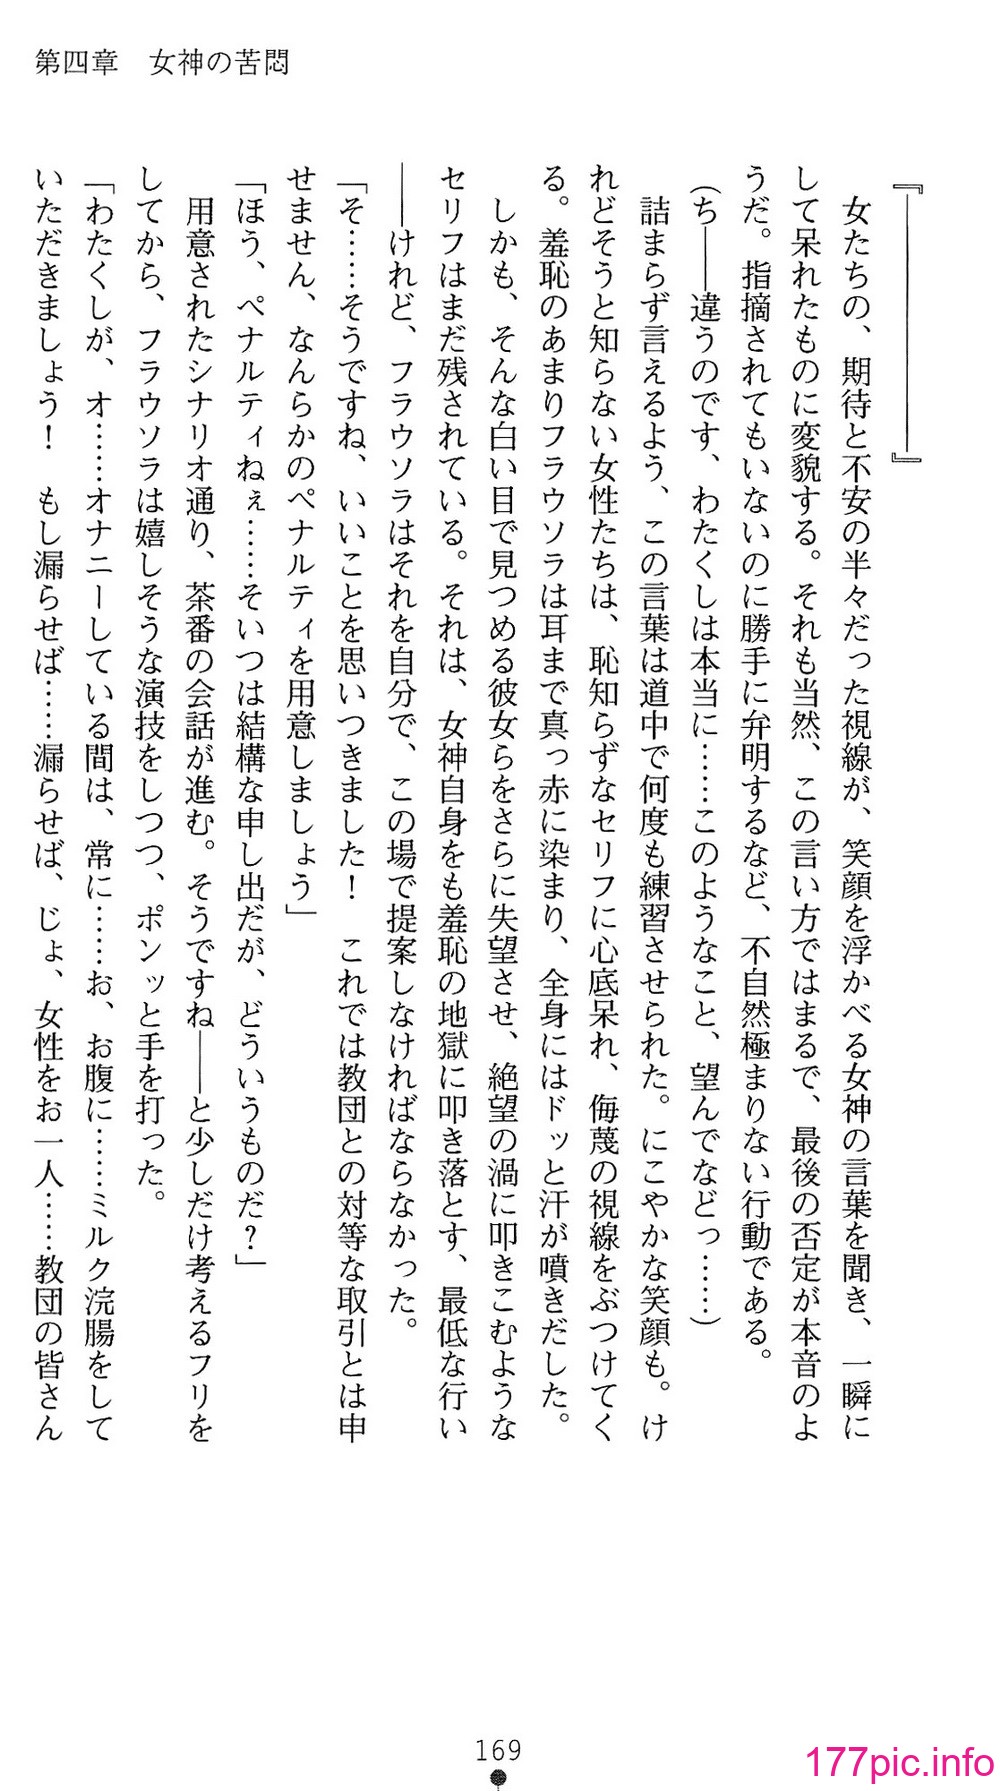 第四章　女神の苦悶
『――――――――』
　女たちの、期待と不安の半々だった視線が、笑顔を浮かべる女神の言葉を聞き、一瞬に
して呆れたものに変貌する。それも当然、この言い方ではまるで、最後の否定が本音のよ
うだ。指摘されてもいないのに勝手に弁明するなど、不自然極まりない行動である。
（ち――違うのです、わたくしは本当に……このようなこと、望んでなどっ……）
　詰まらず言えるよう、この言葉は道中で何度も練習させられた。にこやかな笑顔も。け
れどそうと知らない女性たちは、恥知らずなセリフに心底呆れ、侮蔑の視線をぶつけてく
る。羞恥のあまりフラウソラは耳まで真っ赤に染まり、全身にはドッと汗が噴きだした。
　しかも、そんな白い目で見つめる彼女らをさらに失望させ、絶望の渦に叩きこむような
セリフはまだ残されている。それは、女神自身をも羞恥の地獄に叩き落とす、最低な行い
――けれど、フラウソラはそれを自分で、この場で提案しなければならなかった。
「そ……そうですね、いいことを思いつきました！　これでは教団との対等な取引とは申
せません、なんらかのペナルティを用意しましょう」
「ほう、ペナルティねぇ……そいつは結構な申し出だが、どういうものだ？」
　用意されたシナリオ通り、茶番の会話が進む。そうですね――と少しだけ考えるフリを
してから、フラウソラは嬉しそうな演技をしつつ、ポンッと手を打った。
「わたくしが、オ……オナニーしている間は、常に……お、お腹に……ミルク浣腸をして
いただきましょう！　もし漏らせば……漏らせば、じょ、女性をお一人……教団の皆さん
169
177pic.info